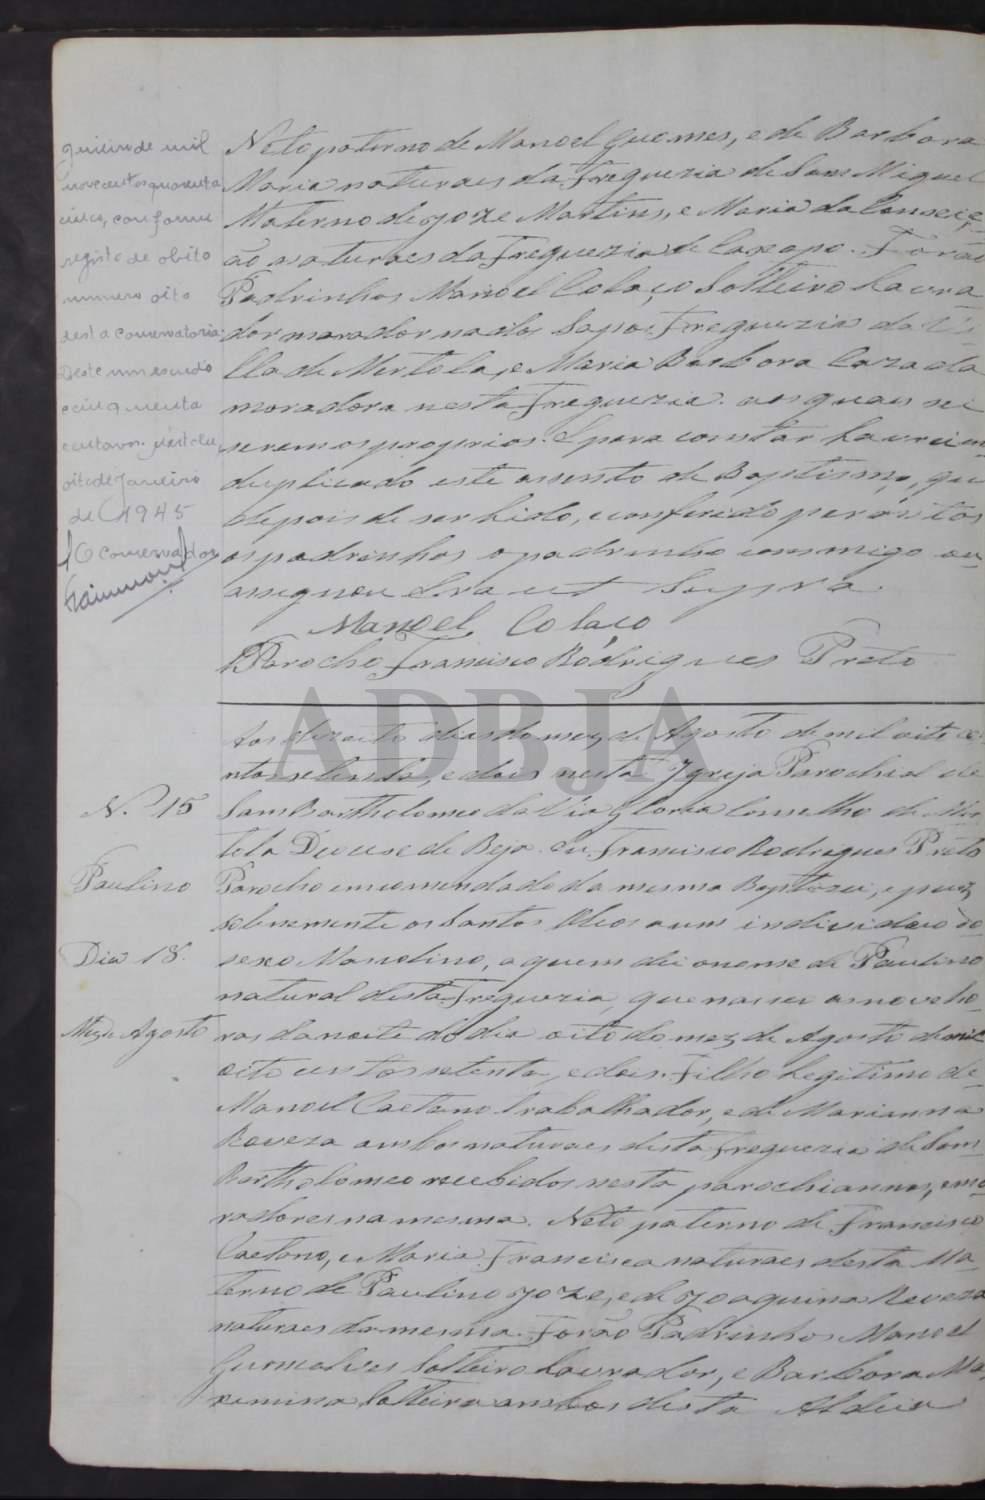 quivo de mil
novecentos quarenta
cinco, conforme
registo de obito
numero oito
desta conservatoria
Deste um escudo
e cinquenta
centavos. Mertola
oito de Janeiro
de 1945
O conservador
Neto paterno de Manoel Guomes, e de Barbora
Maria naturaes da Freguezia de Sam Miguel
Materno de Joze Martins, e Maria da Conceic-
ão naturaes da Freguezia de Caxopo. Forão
Padrinhos Manoel Colaço Solteiro Lavra
dor morador nados Sapos Freguezia da Vi-
lla de Mertola, e Maria Barbora Cazada
moradora nesta Freguezia. aos quaes
serem os proprios. E para constar lavrei em
duplicado este assento de Baptismo, que
depois de ser lido, e conferido perante os
os padrinhos o padrinho commigo
assignou Era ut Supra
Manoel Colaço
O Parocho Francisco Rodrigues Prêto
ADBJA
Aos dezoito dias do mez de Agosto de mil oito ce-
ntos setenta, e dois nesta Igreja Parochial de
Sam Bartholomeo da Via Gloria Conselho de Mer-
tola Diocese de Beja eu Francisco Rodrigues Prêto
Parocho emcomendado da mesma Baptizei, e puz
solenemente os Santos Oleos a um individuo do
sexo Masculino, a quem dei o nome de Paulino
natural desta Freguezia, que nasceu as nove ho-
ras da noite do dia oito do mez de Agosto de mil
oito centos setenta, e dois. Filho Legitimo de
Manoel Caetano trabalhador, e de Marianna
Reveza ambos naturaes desta Freguezia de Sam
Bartholomeo recebidos nesta parochia, e mo-
radores na mesma. Neto paterno de Francisco
Caetano, e Maria Francisca naturaes desta Ma-
terno de Paulino Joze, e de Joaquina Reveza
naturaes da mesma. Forão Padrinhos Manoel
Gumsalves Solteiro Lavrador, e Barbora Ma-
xemina Solteira ambos desta Aldeia
N.º 15
Paulino
Dia 18.
Mez de Agosto